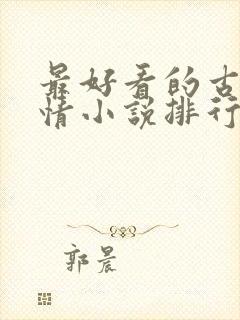 最好看的古
情小說排行
郭晨